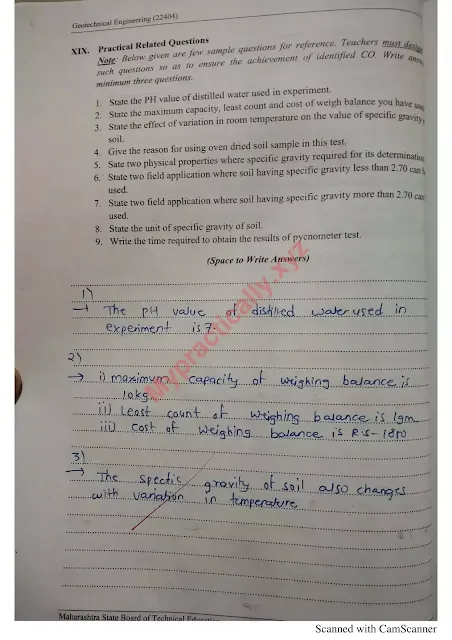 Geotechnical Engineering (22404)
XIX. Practical Related Questions
Note: Below given are few sample questions for reference. Teachers must design
such questions so as to ensure the achievement of identified CO. Write
minimum three questions.
1. State the PH value of distilled water used in experiment.
2. State the maximum capacity, least count and cost of weigh balance you have used
3. State the effect of variation in room temperature on the value of specific gravity
soil.
4. Give the reason for using oven dried soil sample in this test.
5. Sate two physical properties where specific gravity required for its determination
6. State two field application where soil having specific gravity less than 2.70 can
used.
7. State two field application where soil having specific gravity more than 2.70 can
used.
8. State the unit of specific gravity of soil.
9. Write the time required to obtain the results of pycnometer test.
(Space to Write Answers)
1)
→ The pH value of distilled water used in
experiment is 7.
2)
→ i) maximum capacity of weighing balance is
10kg
ii) Least count of weighing balance is 1gm
iii) Cost of weighing balance is RS-1800
3)
→ The specific gravity of soil also changes
with variation in temperature
Mypractically.xyz
Maharashtra State Board of Technical
Scanned with CamScanner